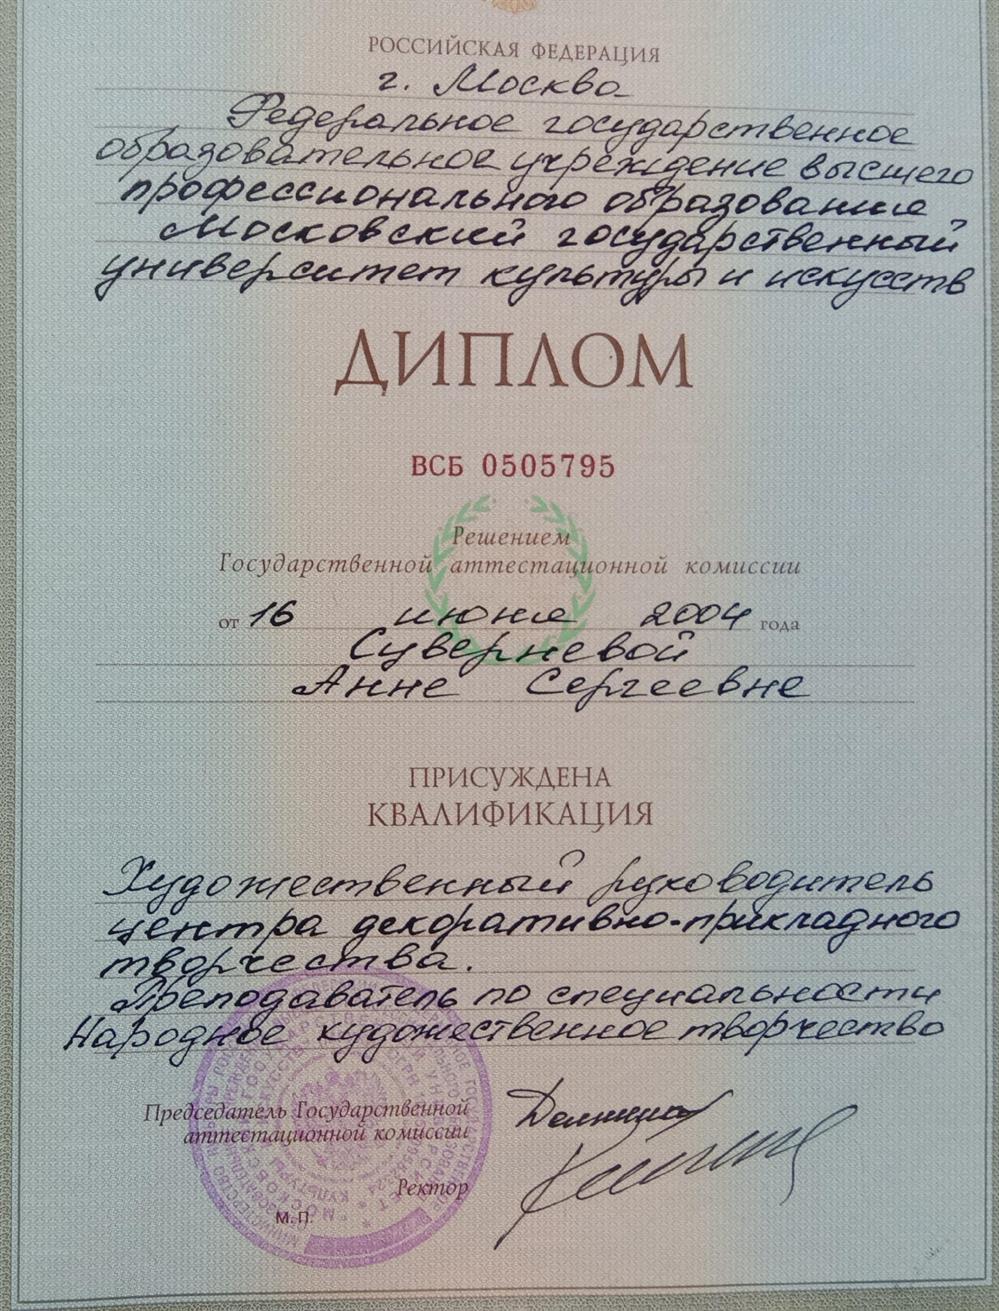 РОССИЙСКАЯ ФЕДЕРАЦИЯ
г. Москва
Федеральное государственное
образовательное учреждение высшего
профессионального образования
Московский государственный
университет культуры и искусств
ДИПЛОМ
ВСБ 0505795
Решением
Государственной аттестационной комиссии
от 16 июня 2004 года
Суверневой
Анне Сергеевне
ПРИСУЖДЕНА
КВАЛИФИКАЦИЯ
Художественный руководитель
центра декоративно-прикладного
творчества.
Преподаватель по специальности
Народное художественное творчество
Председатель Государственной
аттестационной комиссии
Ректор
М. П.